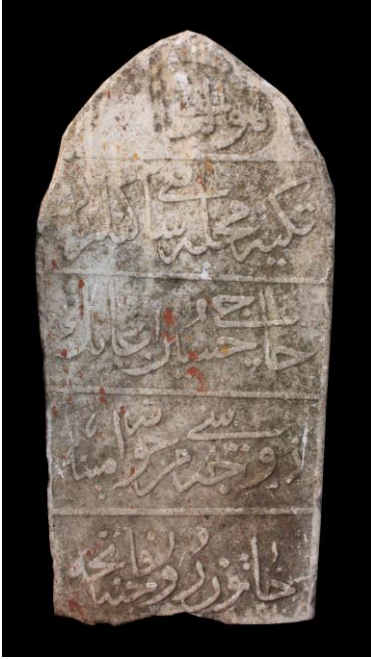 هو الباقي
تكيه محله سي ساكنلرندن
حاجي حسين اغانك
زوجه سي مرحومه
خاتون روحنه فاتحه